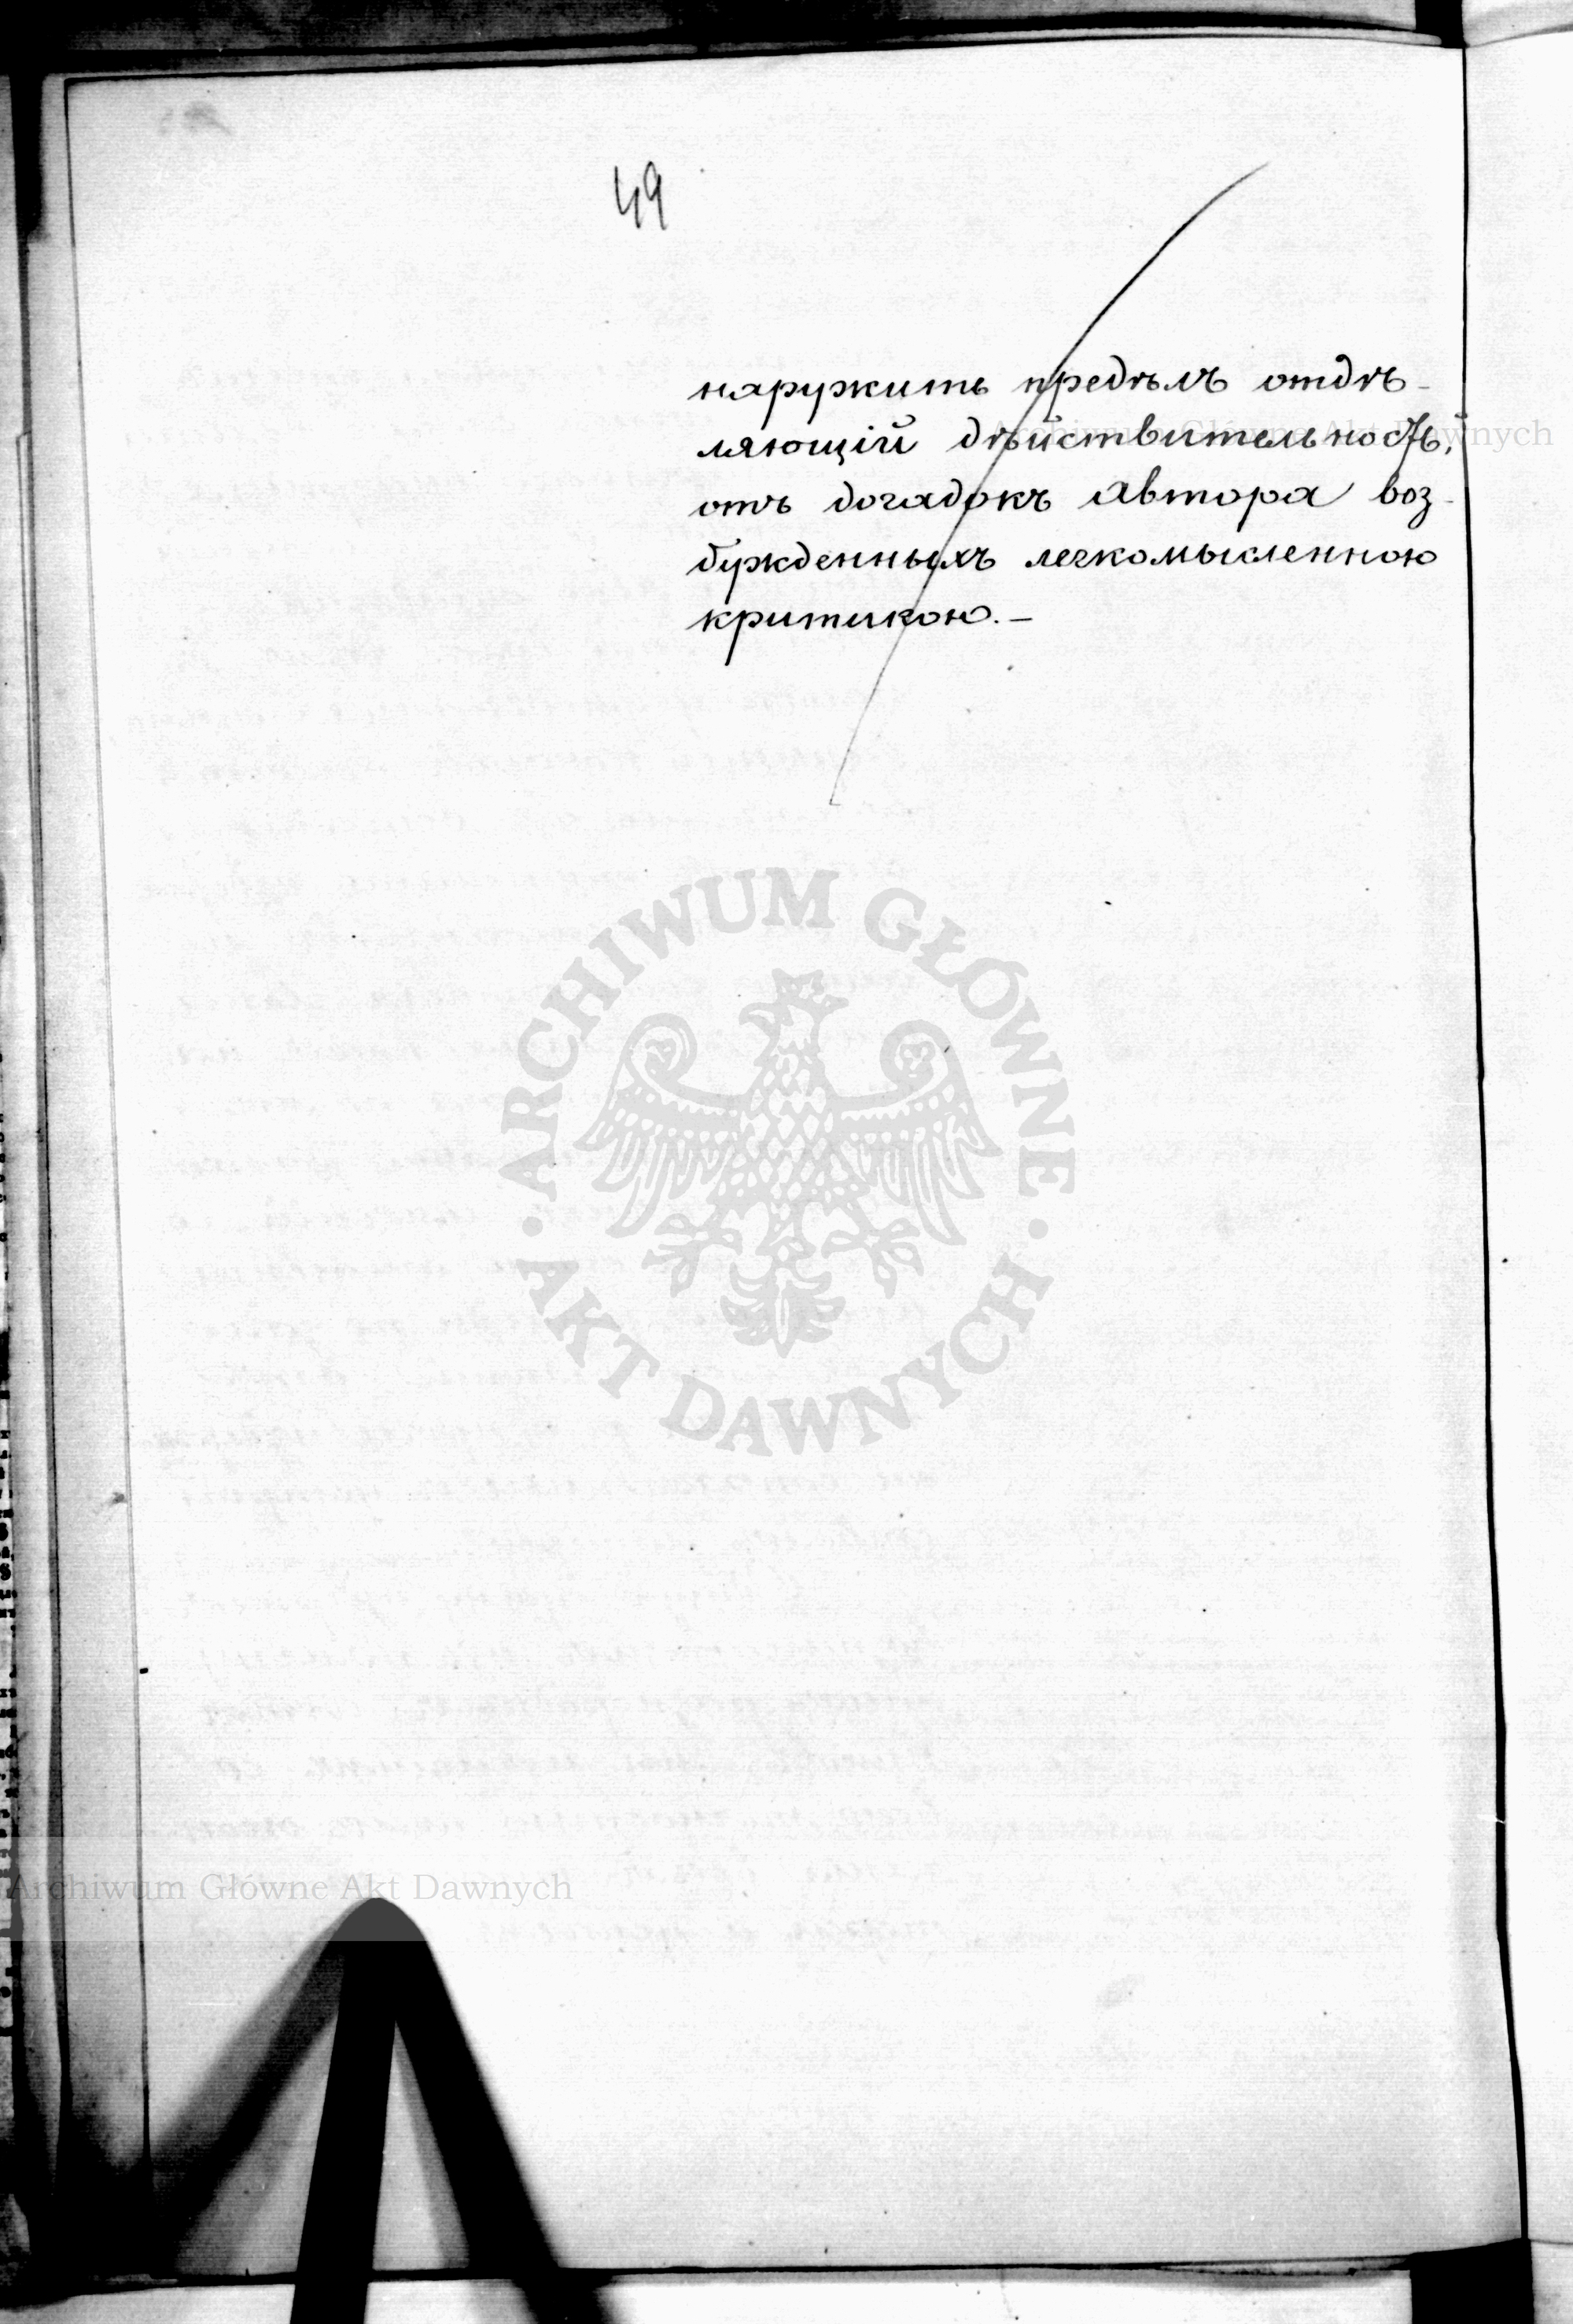 49
наружить предѣлъ отдѣ-
ляющій дѣйствительность,
отъ догадокъ автора воз-
бужденныхъ легкомысленною
критикою.-
Archiwum Główne Akt Dawnych
ARCHIWUM GŁÓWNE
AKT DAWNYCH
Archiwum Główne Akt Dawnych